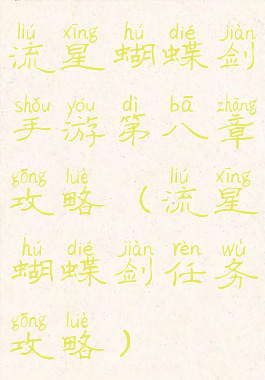 liú xīng hú dié jiàn
流星蝴蝶剑
shǒu yóu dì bā zhāng
手游第八章
gōng lüè liú xīng
攻略（流星
hú dié jiàn rèn wù
蝴蝶剑任务
gōng lüè
攻略）